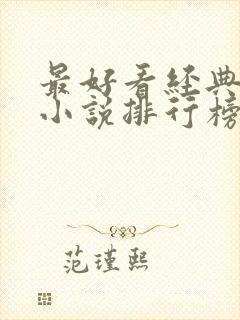 最好看经典
小说排行榜
范瑾熙